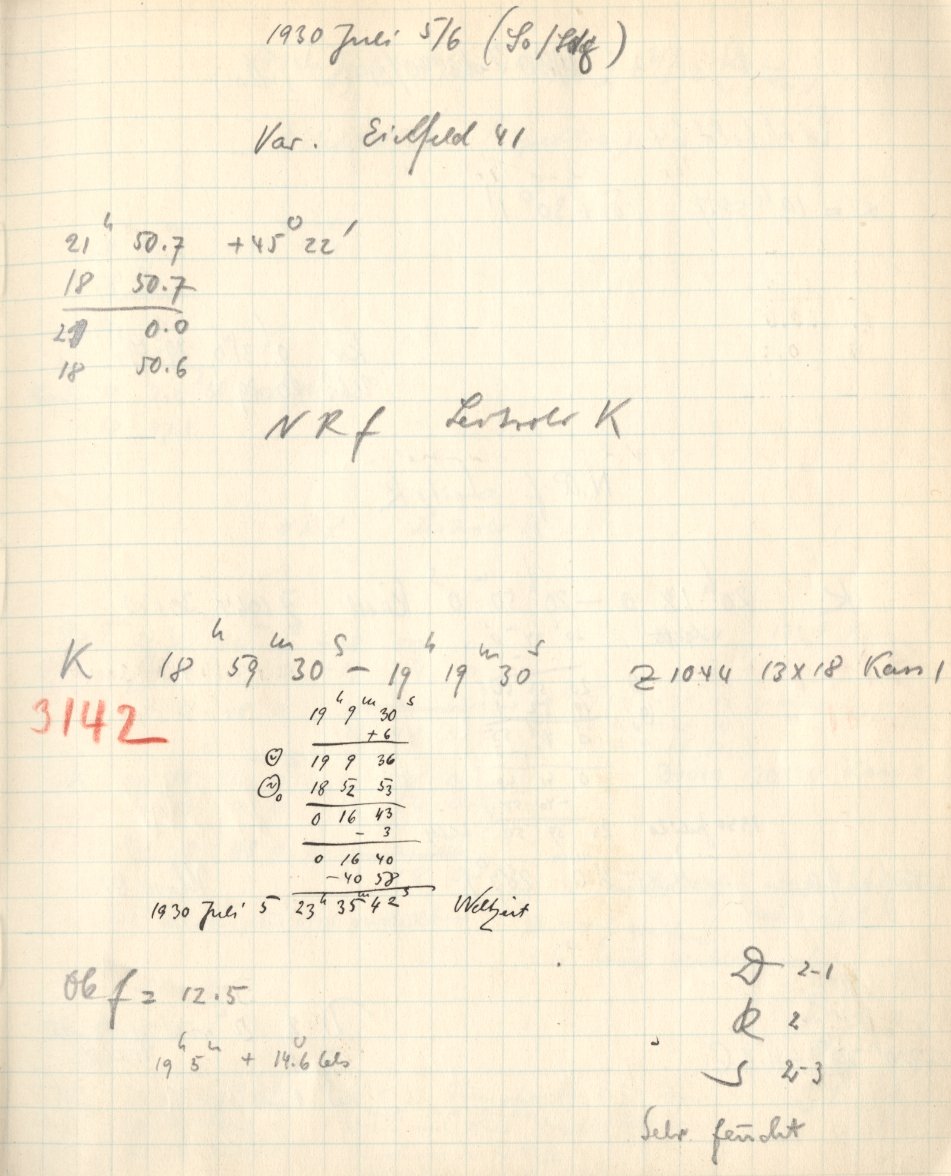 1930 Juli 5/6 (So/
Var. Eichfeld 41
21ʰ 50.7 +45° 22′
18 50.7
0.0
18 50.6
NRf K
K 18ʰ 59ᵐ 30ˢ – 19ʰ 19ᵐ 30ˢ Z 1044 13x18 Kass 1
3142
19ʰ 9ᵐ 30ˢ
+6
19 9 36
18 52 53
0 16 43
– 3
0 16 40
–40 58
1930 Juli 5 23ʰ 35ᵐ 42ˢ Weltzeit
Ob f = 12.5
19ʰ 5ᵐ + 14.°6
D 2-1
R 2
S 2-3
Sehr feucht